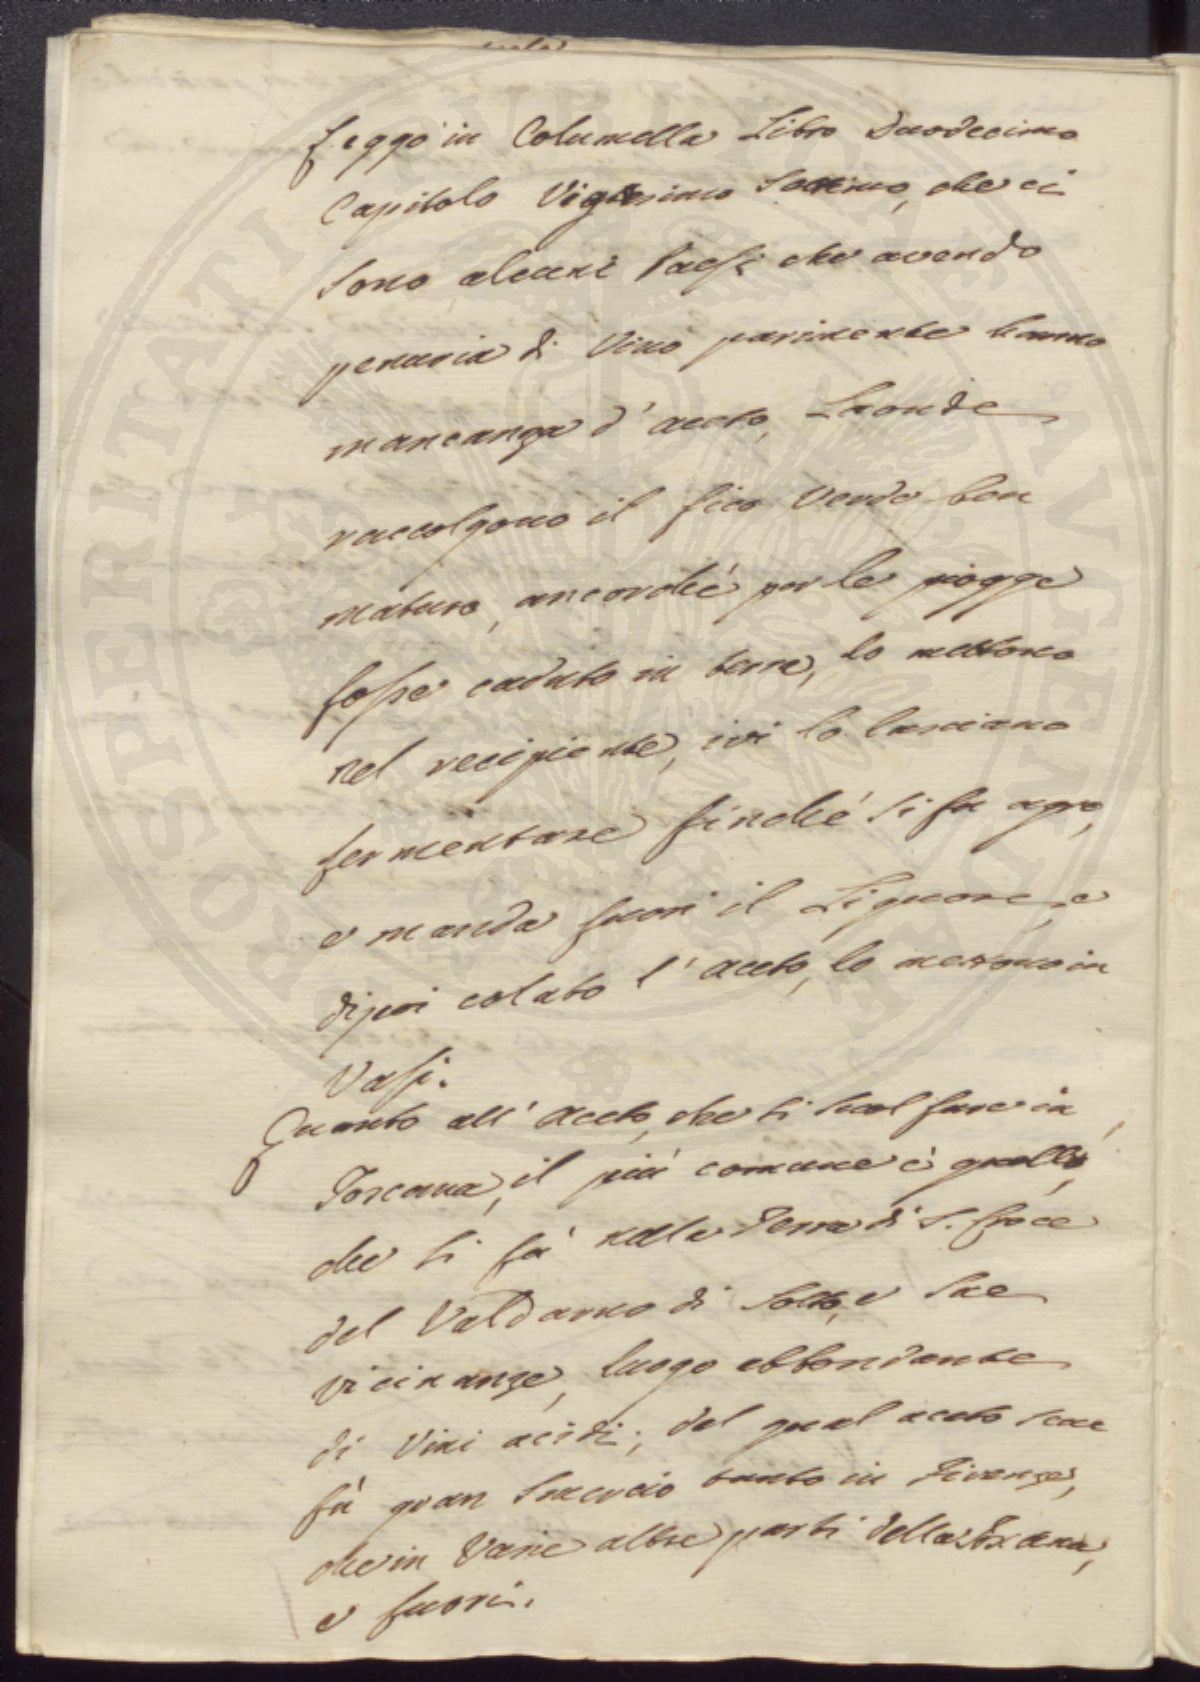 Leggo in Columella Libro Duodecimo
Capitolo Vigesimo Settimo, che ci
sono alcuni Paesi che avendo
penuria di Vino parimente hanno
mancanza d'aceto, Laonde
raccolgono il fico Verde ben
maturo, ancorché per le piogge
fosse caduto in terra, lo mettono
nel recipiente, ivi lo lasciano
fermentare finché si fa agro,
e manda fuori il Liquore, e
dipoi colato l'aceto, lo mettono in
Vasi.
Quanto all'Aceto, che si suol fare in
Toscana, il più comune è quello,
che si fà nella Terra di S. Croce
del Valdarno di Sotto, e sue
vicinanze, luogo abbondante
di Vini acidi; del qual aceto sene
fà gran smercio tanto in Firenze,
che in Varie altre parti della Toscana,
e fuori.
PROSPERITATI PUBLICAE AUGENDAE